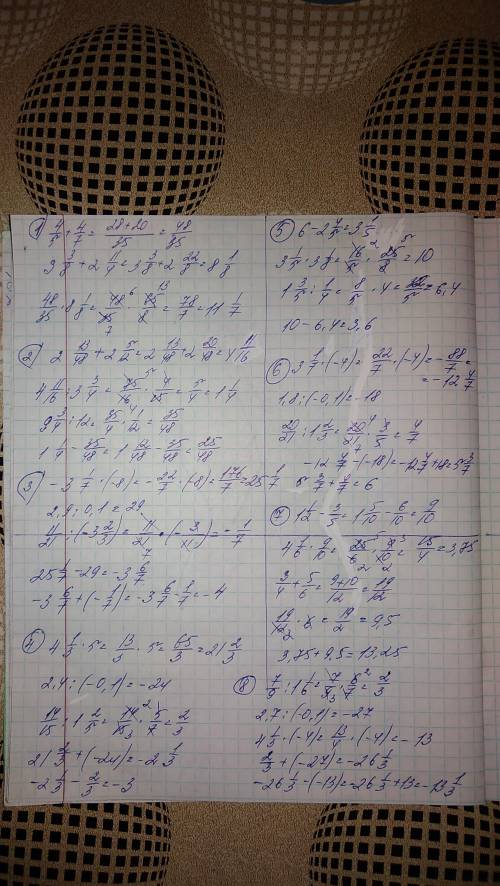 ① 4/5 + 4/7 = (28+20)/35 = 48/35
3 3/8 · 2 11/4 = 3 3/8 · 2 22/8 = 8 1/8
48/35 · 8 1/8 = 48/35 · 65/8 = 78/7 = 11 1/7
② 2 13/48 + 2 5/12 = 2 13/48 + 2 20/48 = 4 11/16
4 11/16 : 3 3/4 = 75/16 · 4/15 = 5/4 = 1 1/4
9 3/4 : 12 = 35/4 · 1/12 = 35/48
1 1/4 - 35/48 = 1 12/48 - 35/48 = 25/48
③ -3 1/7 · (-8) = -22/7 · (-8) = 176/7 = 25 1/7
2,9 : 0,1 = 29
11/21 : (-3 2/3) = 11/21 · (-3/11) = -1/7
25 1/7 - 29 = -3 6/7
-3 6/7 + (-1/7) = -3 6/7 - 1/7 = -4
④ 4 1/3 · 5 = 13/3 · 5 = 65/3 = 21 2/3
2,4 : (-0,1) = -24
14/15 : 1 2/5 = 14/15 · 5/7 = 2/3
21 2/3 + (-24) = -2 1/3
-2 1/3 - 2/3 = -3
⑤ 6 - 2 4/5 = 3 1/5
3 1/5 · 3 1/8 = 16/5 · 25/8 = 10
1 3/5 : 1/4 = 8/5 · 4 = 32/5 = 6,4
10 - 6,4 = 3,6
⑥ 3 1/7 · (-4) = 22/7 · (-4) = -88/7 =
= -12 4/7
1,8 : (-0,1) = -18
20/21 : 1 2/3 = 20/21 · 3/5 = 4/7
-12 4/7 - (-18) = -12 4/7 + 18 = 5 3/7
5 3/7 + 4/7 = 6
⑦ 1 1/2 - 3/5 = 1 5/10 - 6/10 = 9/10
4 1/6 · 9/10 = 25/6 · 9/10 = 15/4 = 3,75
3/4 + 5/6 = (9+10)/12 = 19/12
19/12 · 6 = 19/2 = 9,5
3,75 + 9,5 = 13,25
⑧ 7/9 : 1 1/6 = 7/9 · 6/7 = 2/3
2,7 : (-0,1) = -27
4 1/3 · (-4) = 13/4 · (-4) = -13
2/3 + (-27) = -26 1/3
-26 1/3 - (-13) = -26 1/3 + 13 = -13 1/3